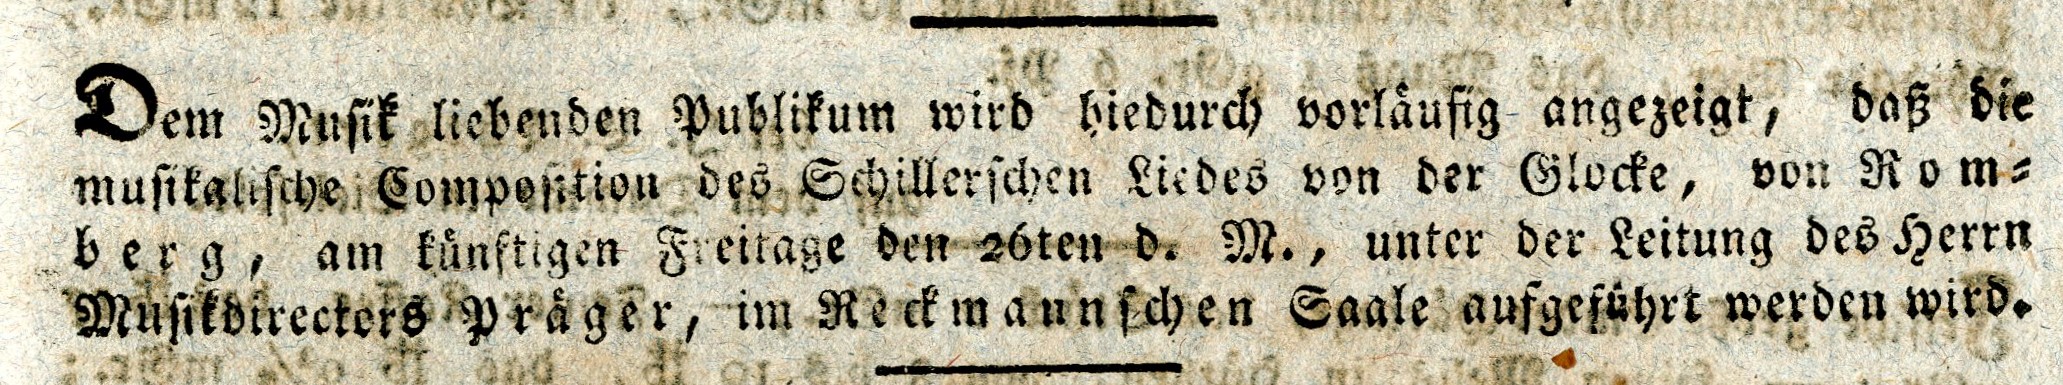 Dem Musik liebenden Publikum wird hiedurch vorläufig angezeigt, daß die
musikalische Composition des Schillerschen Liedes von der Glocke, von Rom-
berg, am künftigen Freitage den 26ten d. M., unter der Leitung des Herrn
Musikdirectors Präger, im Reckmannschen Saale aufgeführt werden wird.